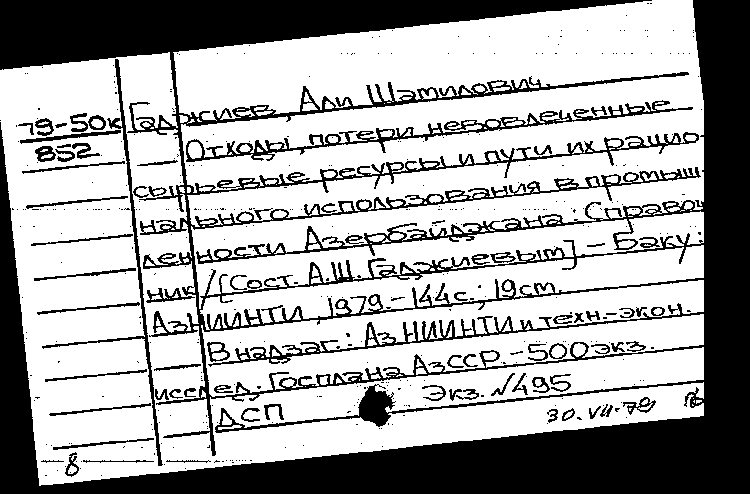 79-50к Гаджиев, Али Шамилович.
852 Отходы, потери, невовлеченные
сырьевые ресурсы и пути их рацио-
нального использования в промыш-
ленности Азербайджана: Справоч
ник / [Сост. А.Ш. Гаджиевым]. - Баку:
АзНИИНТИ, 1979. - 144 с.; 19 cm.
В надзаг.: АзНИИНТИ и техн.-экон.
исслед. Госплана АзССР. - 500 экз.
ДСП Экз. №495
30.VII-79
8